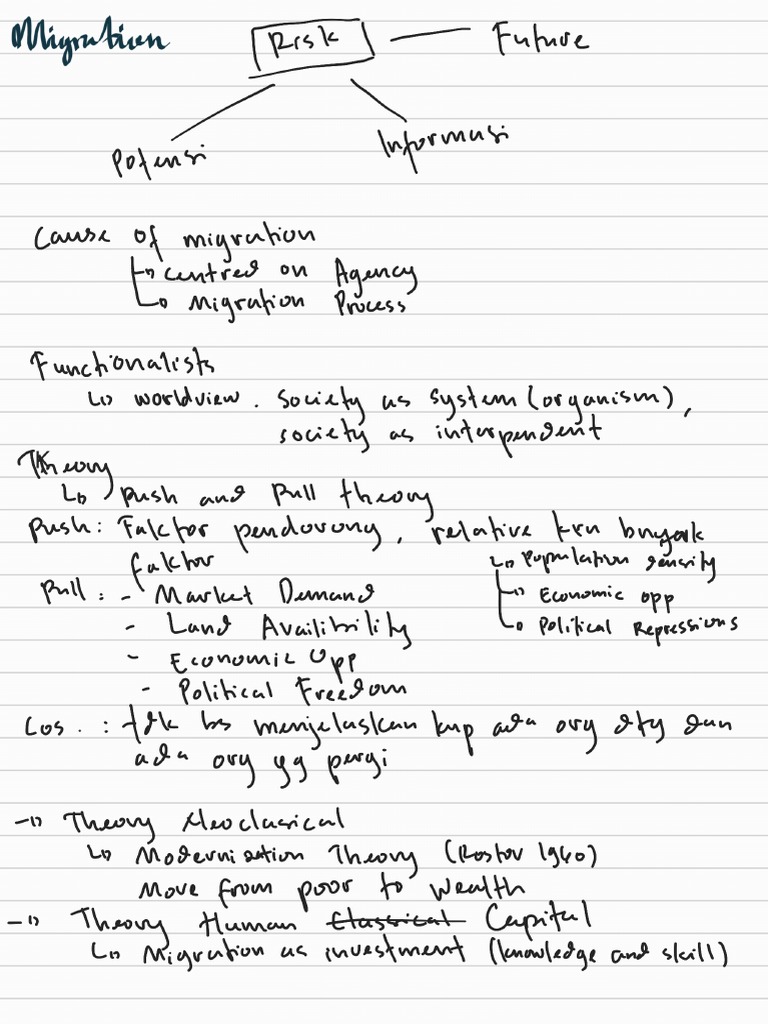 Migration
Risk
Future
Potensi
Informasi
Cause of migration
Centred on Agency
Migration Process
Functionalists
worldview. Society as system (organism),
society as interpendent
Theory
push and pull theory
Push: Faktor pendorong, relative krn banyak
faktor
Population density
Pull: - Market Demand
Economic opp
- Land Availibility
Political Repressions
- Economic Opp
- Political Freedom
: tdk bs menjelaskan knp ada org dtg dan
ada org yg pergi
Theory Neoclasical
Modernisation Theory (Rostov 1960)
Move from poor to wealth
Theory Human Classical Capital
Migration as investment (knowledge and skill)